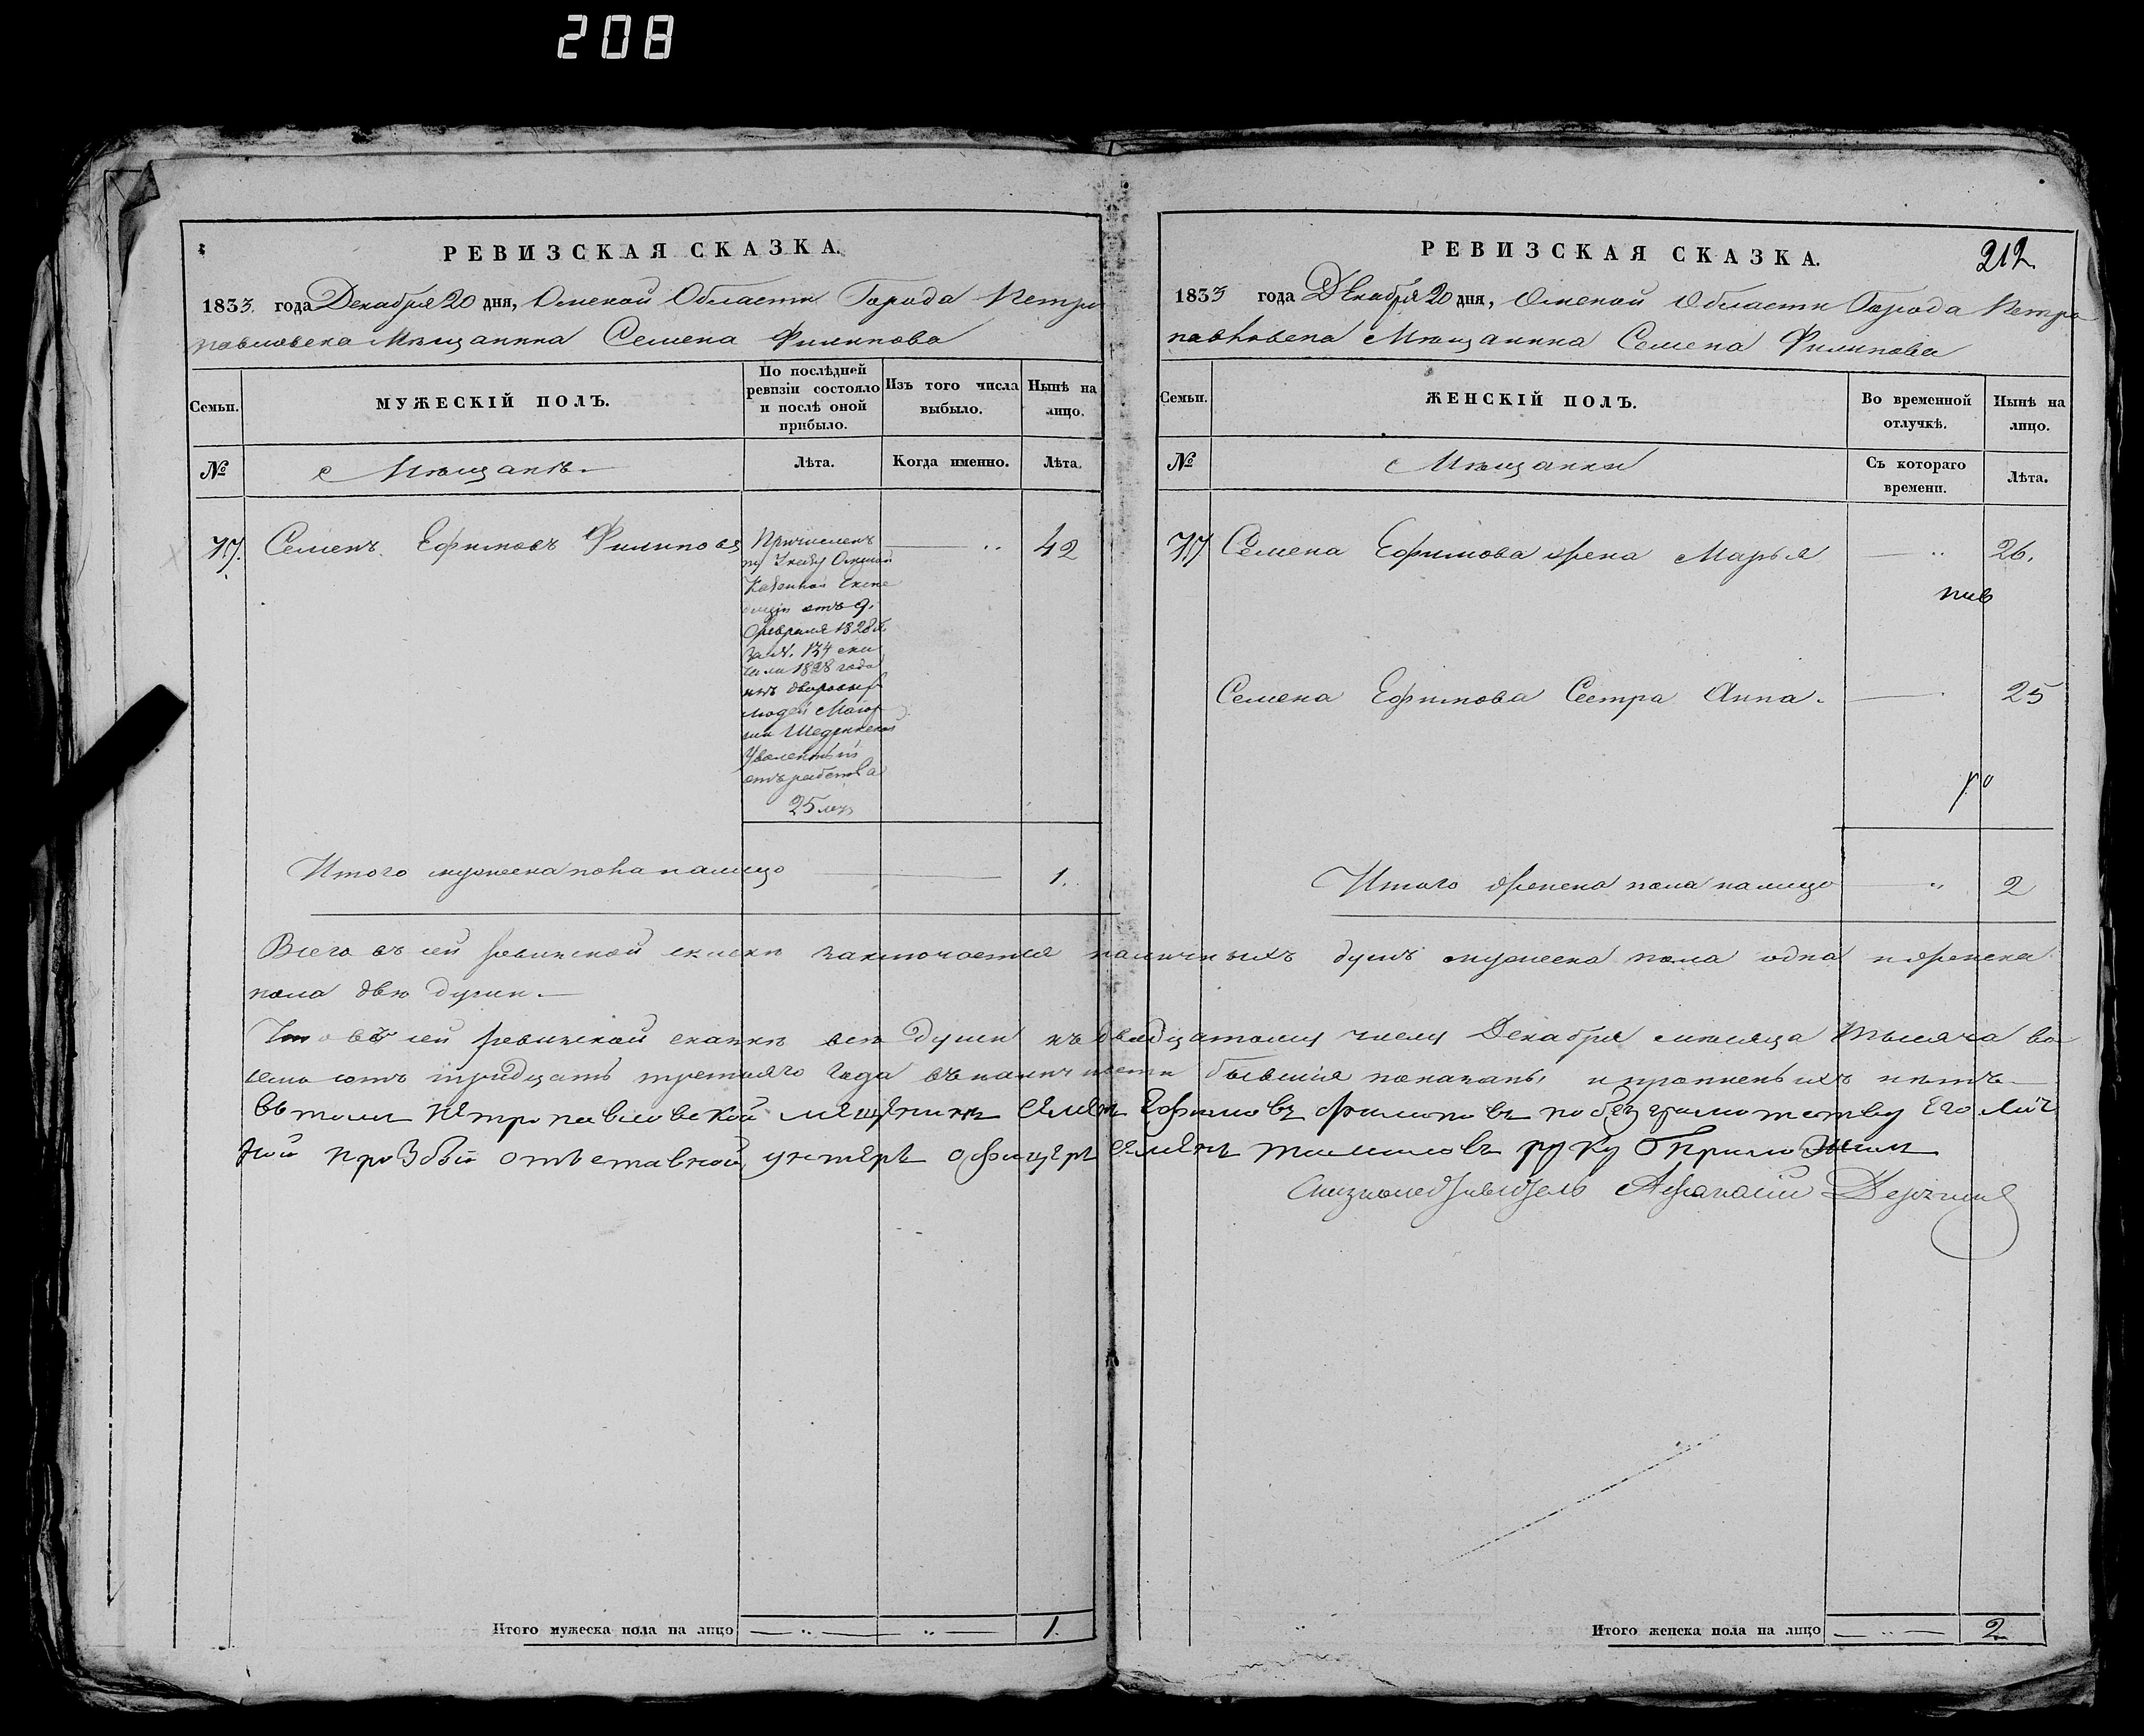 208
РЕВИЗСКАЯ СКАЗКА.
1833. года Декабря 20 дня, Омской Области Города Петро
павловска Мѣщанина Семена Филипова
Семьи.
МУЖЕСКІЙ ПОЛЪ.
По послѣдней
ревизіи состояло
и послѣ оной
прибыло.
Изъ того числа
выбыло.
Нынѣ на
лицо.
№
Мѣщанѣ.
Лѣта.
Когда именно.
Лѣта.
77. Семенъ Ефимовъ Филиповъ
Причисленъ
по Указу Омской
Казенной Экспе
диціи отъ 9.
Февраля 1828 г.
За №. 134
1828 года
изъ дворовыхъ
людей Маіор
ши
Уволенный
отъ рабства
25 лѣтъ
42
Итого мужеска пола налицо 1.
РЕВИЗСКАЯ СКАЗКА.
212.
1833 года Декабря 20 дня, Омской Области Города Петро
павловска Мѣщанина Семена Филипова
Семьи.
ЖЕНСКІЙ ПОЛЪ.
Во временной
отлучкѣ.
Нынѣ на
лицо.
№
Мѣщанки
Съ котораго
времени.
Лѣта.
77 Семена Ефимова жена Марья 26.
Семена Ефимова Сестра Анна. 25
Итого женска пола налицо 2
Всего въ сей ревизской сказкѣ заключается наличныхъ душъ мужеска пола одна и женска
пола двѣ души.
Что въ сей ревизской сказкѣ всѣ души къ двадцатому числу Декабря мѣсяца тысяча во
семь сотъ тридцать третьяго Года въ наличности бывшія показаны и прописныхъ нѣтъ
въ томъ петропавловской мещенинъ семенъ Ефимовъ филиповъ побезграмотству Его лич
ной прозбы отъставной унтеръ офицеръ семенъ руку приложилъ
Афанасій
Итого мужеска пола на лицо 1.
Итого женска пола на лицо 2